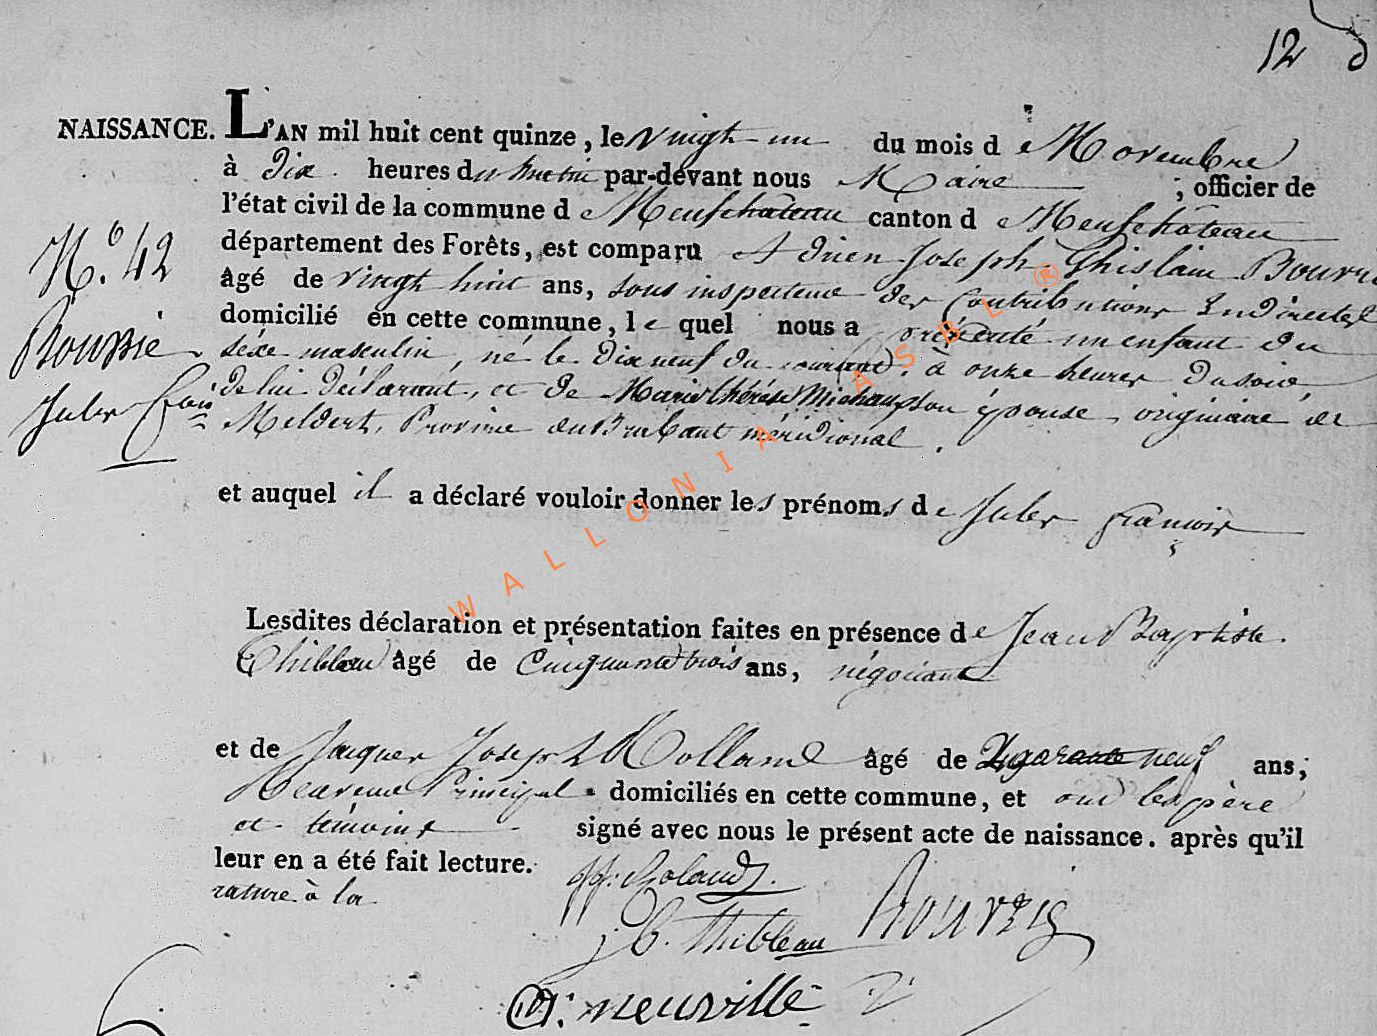 12
NAISSANCE. L'AN mil huit cent quinze, le vingt un du mois de Novembre
à Dix heures du matin par-devant nous Maire ; officier de
l'état civil de la commune de Neufchateau canton de Neufchateau
N.º 42
département des Forêts, est comparu Adrien Joseph Ghislain
âgé de vingt huit ans, sous inspecteur des Contributions Indirectes
domicilié en cette commune, le quel nous a présenté un enfant du
séxe masculin, né le Dix neuf du courant, à onze heures du soir
de lui déclarant, et de Marie Thérèse son épouse originaire de
Jules
Meldert, Province du Brabant méridional.
et auquel il a déclaré vouloir donner les prénoms de Jules françois
Lesdites déclaration et présentation faites en présence de Jean Baptiste
Thibleau âgé de Cinquante trois ans, négociant
et de Jacques Joseph Rolland âgé de neuf ans;
Receveur Principal domiciliés en cette commune, et ont les père
et témoins signé avec nous le présent acte de naissance. après qu'il
leur en a été fait lecture.
rature à la
j b. thibleau
neuville
WALLONIA ASBL ®